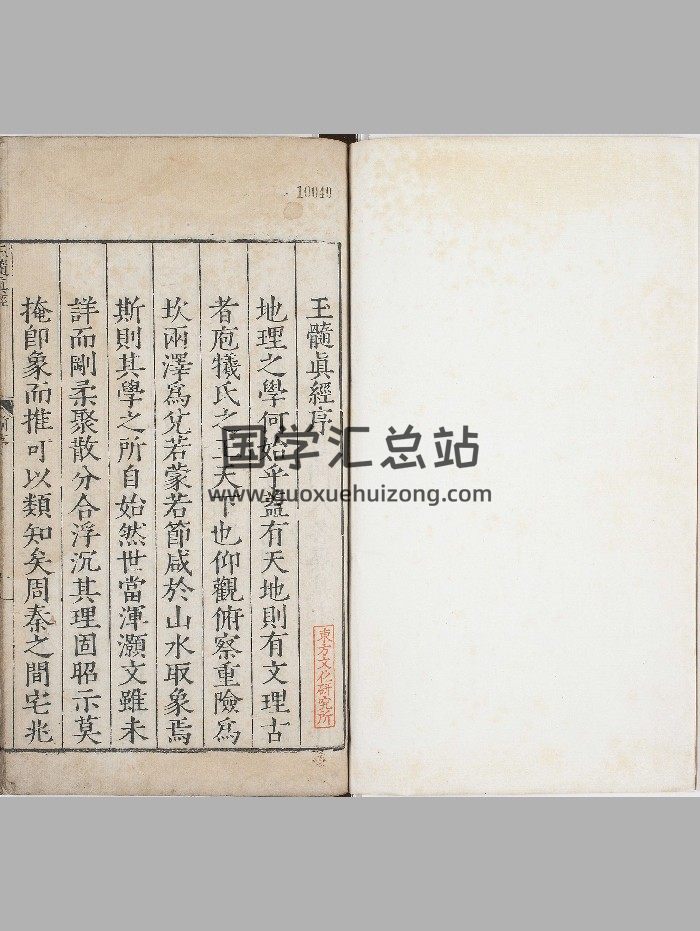 10040
玉髓眞經序
地理之學何始乎蓋有天地則有文理古
者庖犧氏之王天下也仰觀俯察重險爲
坎兩澤爲兊若蒙若節咸於山水取象焉
斯則其學之所自始然世當渾灝文雖未
詳而剛柔聚散分合浮沉其理固昭示莫
掩卽象而推可以類知矣周秦之間宅兆
東方文化研究所
国学汇总站
www.guoxuehuizong.com